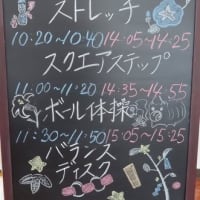 ストレッチ
10:20~10:40 14:05~14:25
スクエアステップ
11:00~11:20 14:35~14:55
ボール体操
11:30~11:50 15:05~15:25
バランス
ディスク